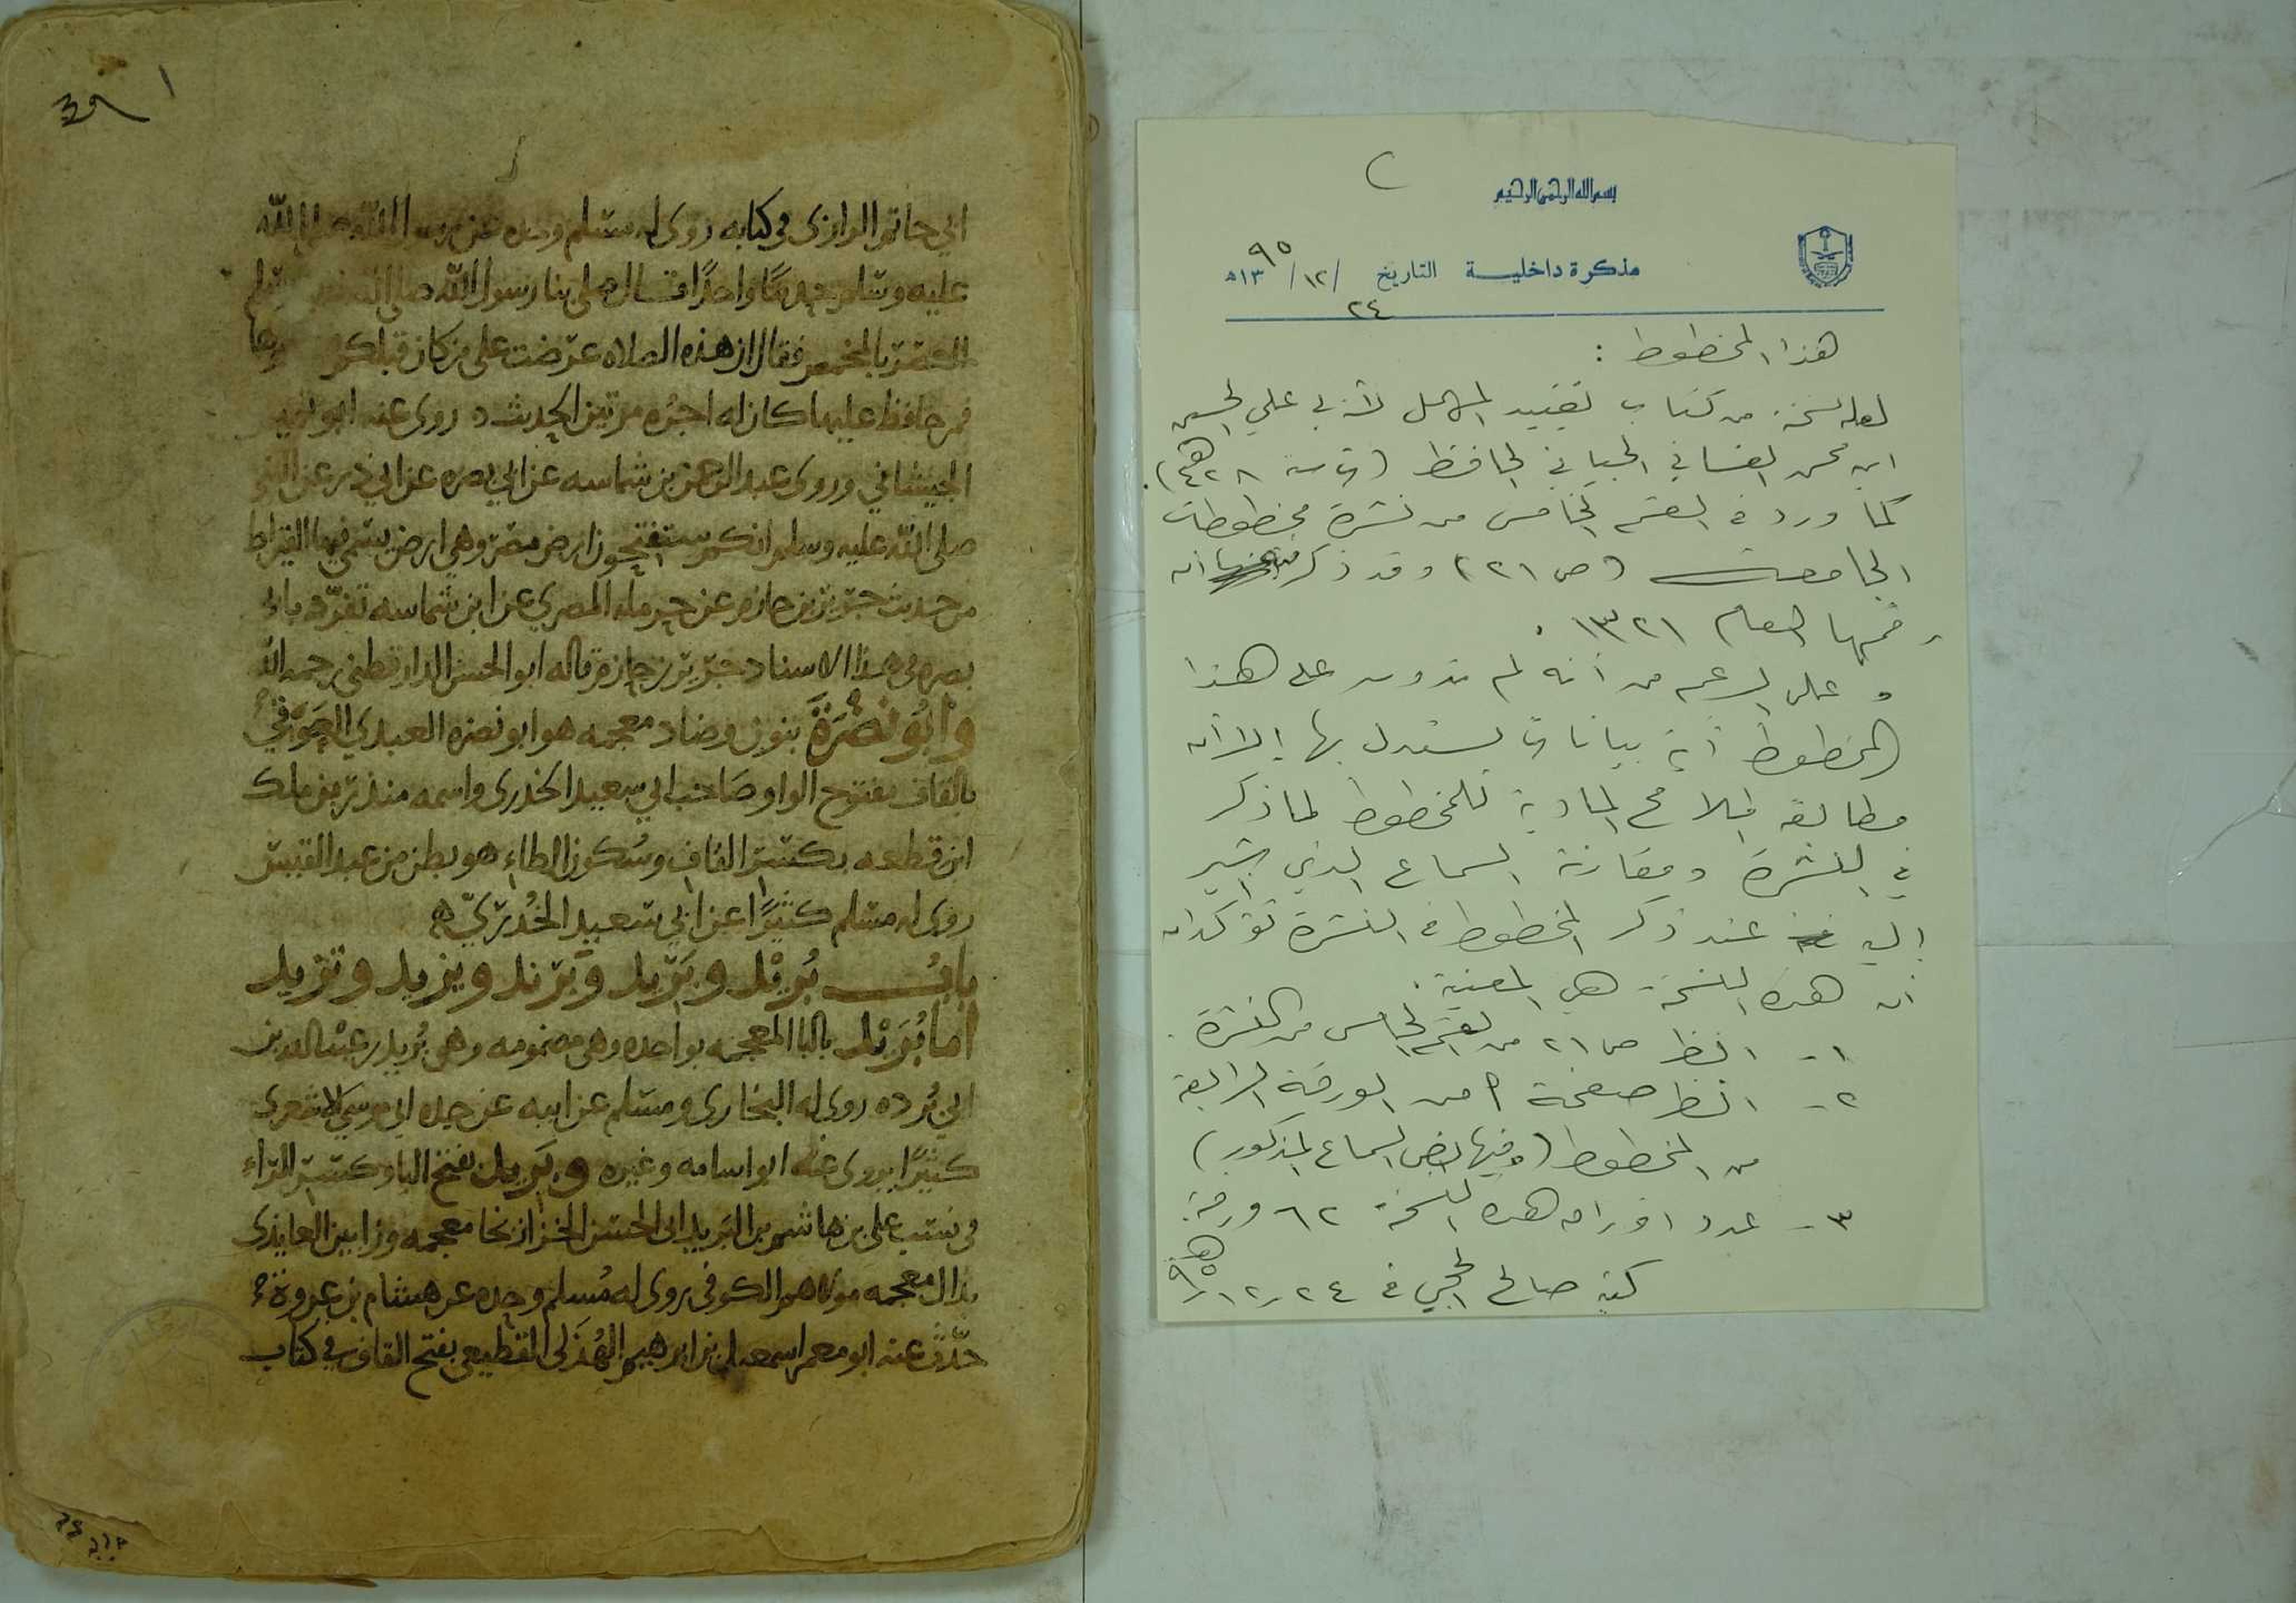 بسم الله الرحمن الرحيم
مذكرة داخلية التاريخ ٢٤/١٢/١٣٩٥هـ
هذا المخطوط :
لعله نسخة من كتاب تقييد المهمل لأبي علي الحسين
ابن محمد الغساني الجياني الحافظ
كما ورد في القسم الخامس من نشرة مخطوطات
الجامعة (ص ٢٢١) وقد ذكر أن
رقمها العام ١٣٢١ .
وعلى الرغم من أنه لم تدون على هذا
المخطوط أية بيانات يستدل بها إلا أن
مطابقة الملامح المادية للمخطوط لما ذكر
في النشرة ومقارنة السماع الذي أشير
إليه عند ذكر المخطوط في النشرة تؤكد أن
هذه النسخة هي المعنية .
١- انظر ص ٢١ من القسم الخامس من النشرة .
٢- انظر صفحة أ من الورقة الرابعة
من المخطوط (وفيها بعض السماع المذكور)
٣- عدد أوراق هذه النسخة ٦٢ ورقة .
كتبه صالح الحجي في ٢٤/١٢/٩٥هـ
ابي حاتم الرازي في كتابه روى له مسلم وحده عن رسول الله صلى الله
عليه وسلم حديثا واحدا قال صلى بنا رسول الله صلى الله عليه وسلم
العصر بالمخمص فقال ان هذه الصلاه عرضت على من كان قبلكم
فمن حافظ عليها كان له اجره مرتين الحديث روى عنه ابو تميم
الجيشاني وروى عبد الرحمن بن شماسه عن ابي بصره عن ابي ذر عن النبي
صلى الله عليه وسلم انكم ستفتحون ارض مصر وهي ارض يسمى فيها القيراط
من حديث جرير بن حازم عن حرمله المصري عن ابن شماسه تفرد بابي
بصره في هذا الاسناد جرير بن حازم قاله ابو الحسن الدارقطني رحمه الله
وأبو نضرة بنون وضاد معجمه هو ابو نضره العبدي العوقي
بالقاف مفتوح الواو صاحب ابي سعيد الخدري واسمه منذر بن ملك
ابن قطعه بكسر القاف وسكون الطاء هو بطن من عبد القيس
روى له مسلم كثيرا عن ابي سعيد الخدري ه
باب بريد وبريد وبرند ويزيد وتزيد
اما بريد بالبا المعجمه بواحده وهي مضمومه وهو بريد بن عبد الله بن
ابي برده روى له البخاري ومسلم عن ابيه عن جده ابي موسى الاشعري
كثيرا يروي عنه ابو اسامه وغيره وبريد بفتح البا وكسر الراء
في نسب علي بن هاشم بن البريد ابي الحسن الخزاز بخا معجمه وزايين العايذي
بذال معجمه مولاهم الكوفي روى له مسلم وحده عن هشام بن عروة
حدث عنه ابو معمر اسمعيل بن ابرهيم الهذلي القطيعي بفتح القاف في كتاب